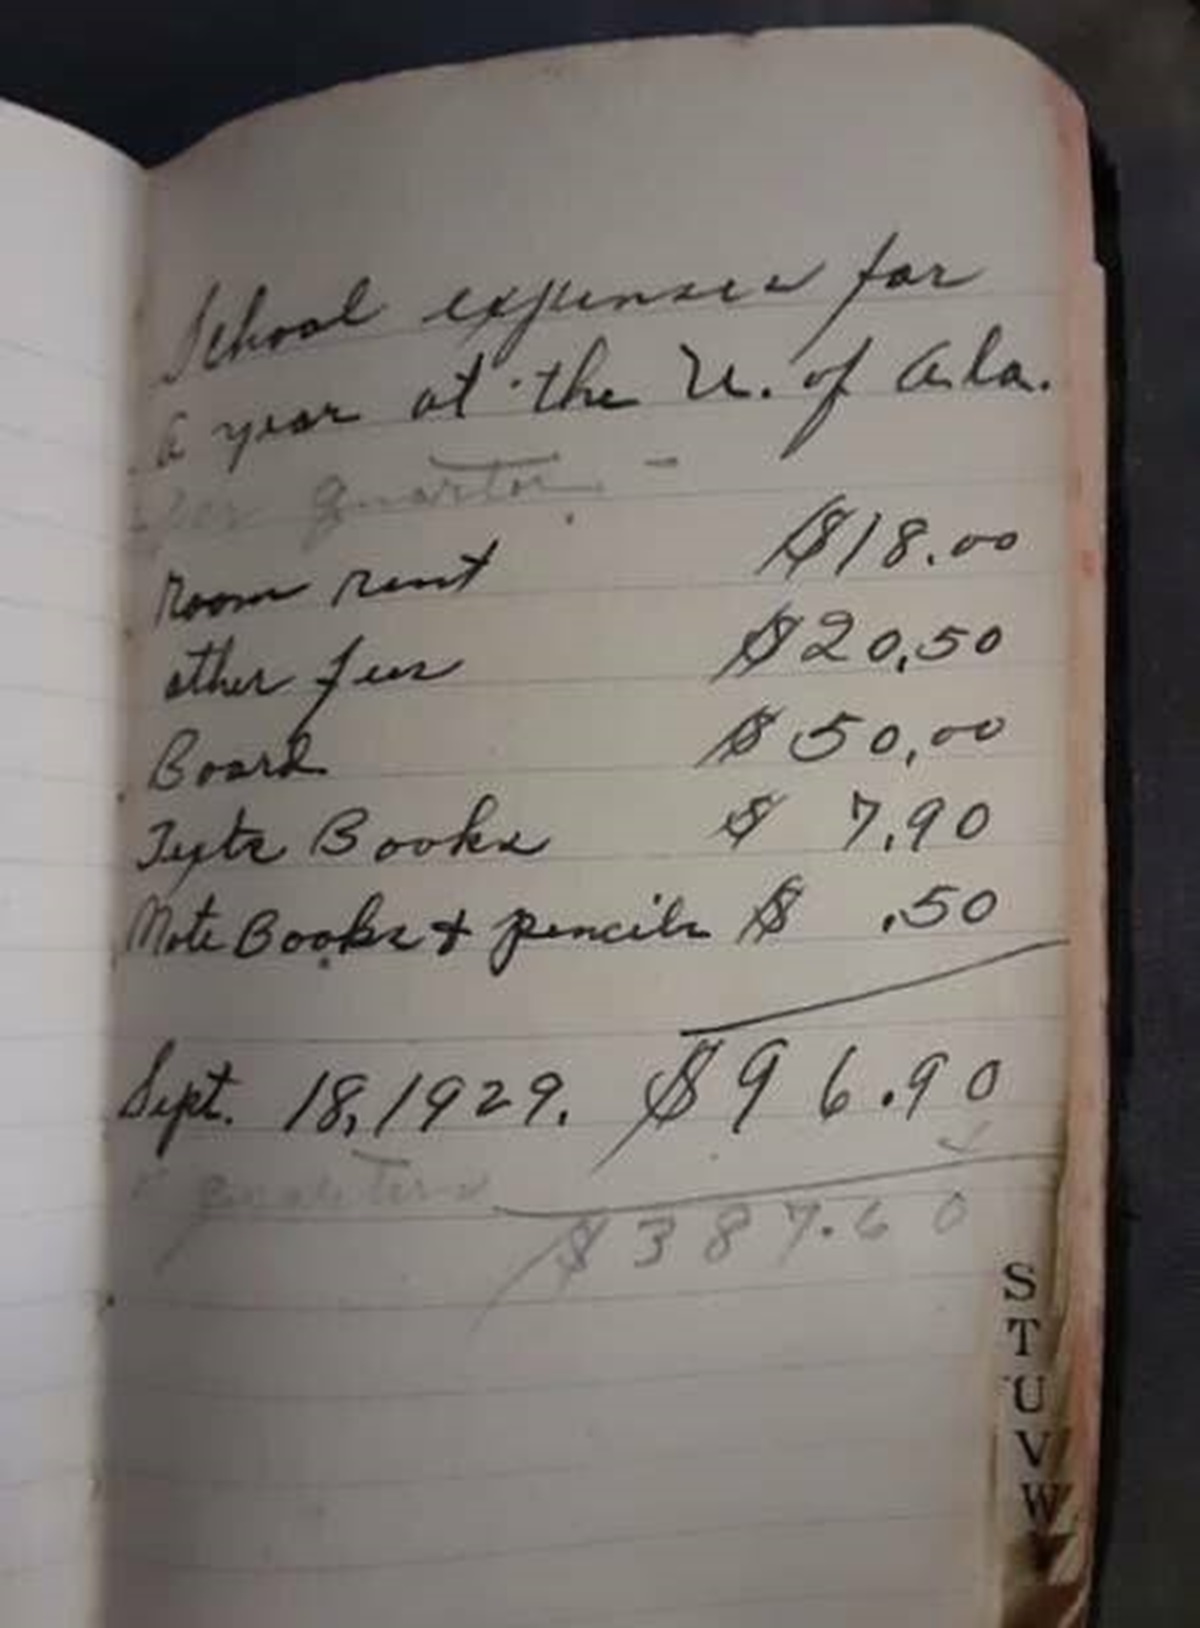 School expenses for
a year at the U. of Ala.
per quarter. -
Room rent $18.00
other fees $20.50
Board $50.00
Texts Books $ 7.90
Note Books & pencils $ .50
Sept. 18, 1929. $96.90
quarters
$387.60
S
T
U
V
W